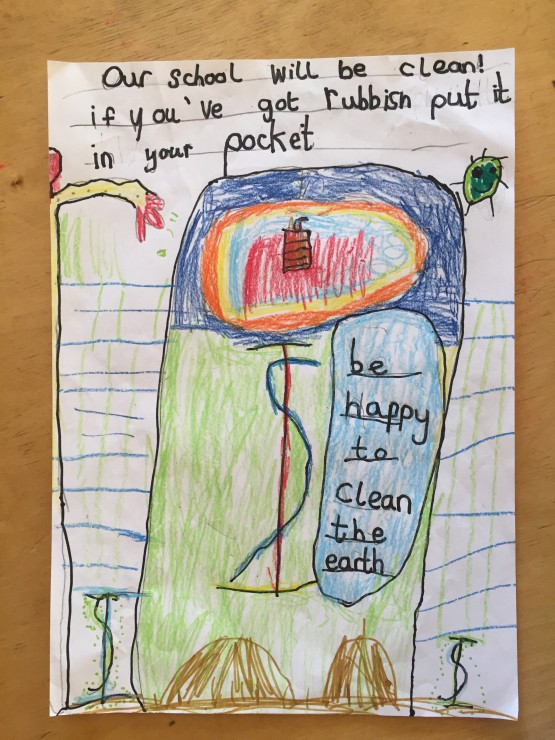 Our school will be clean!
if you've got rubbish put it
in your pocket
be
happy
to
clean
the
earth